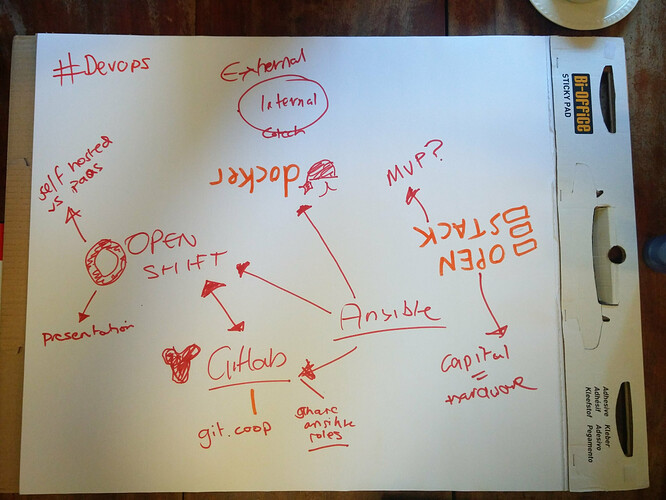 #Devops
External
Internal
docker
self hosted
vs paas
MVP?
OPEN
SHIFT
OPEN
STACK
presentation
Ansible
Gitlab
capital
=
hardware
git.coop
share
ansible
roles
Bi-Office
STICKY PAD
Adhesive Kleber
Adhésif Adesivo
Kleefstof Pegamento